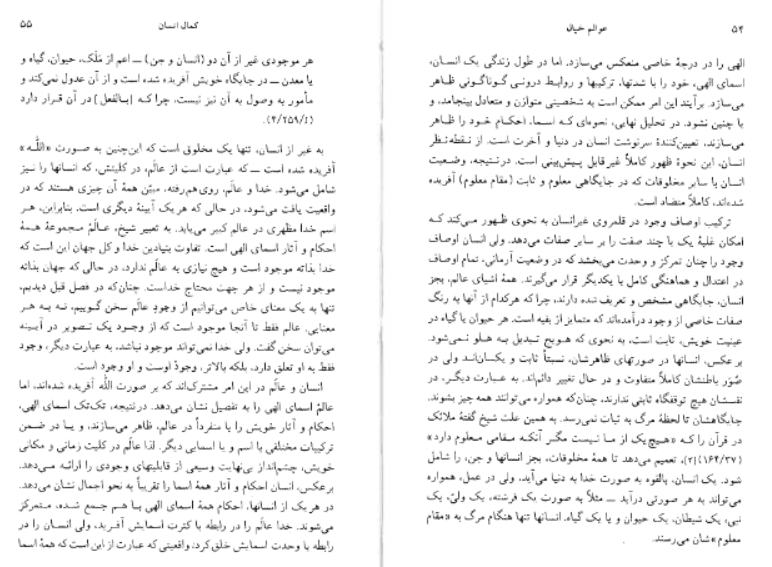 ۵۴
عوالم خیال
الهی را در درجهٔ خاصی منعکس می‌سازد. اما در طول زندگی یک انسان،
اسمای الهی، خود را با شدتها، ترکیبها و روابط درونی گوناگونی ظاهر
می‌سازد. برآیند این امر ممکن است به شخصیتی متوازن و متعادل بینجامد، و
یا چنین نشود. در تحلیل نهایی، نحوه‌ای که اسما، احکام خود را ظاهر
می‌سازند، تعیین‌کنندهٔ سرنوشت انسان در دنیا و آخرت است. از نقطه‌نظر
انسان، این نحوهٔ ظهور کاملاً غیرقابل پیش‌بینی است. درنتیجه، وضعیت
انسان با سایر مخلوقات که در جایگاهی معلوم و ثابت (مقام معلوم) آفریده
شده‌اند، کاملاً متضاد است.
ترکیب اوصاف وجود در قلمروی غیرانسان به نحوی ظهور می‌کند که
امکان غلبهٔ یک یا چند صفت را بر سایر صفات می‌دهد. ولی انسان اوصاف
وجود را چنان تمرکز و وحدت می‌بخشد که در وضعیت آرمانی، تمام اوصاف
در اعتدال و هماهنگی کامل با یکدیگر قرار می‌گیرند. همهٔ اشیای عالم، بجز
انسان، جایگاهی مشخص و تعریف شده دارند، چرا که هرکدام از آنها به رنگ
صفات خاصی از وجود درآمده‌اند که متمایز از بقیه است. هر حیوان یا گیاه در
عینیت خویش، ثابت است، به نحوی که هویج تبدیل به هلو نمی‌شود.
برعکس، انسانها در صورتهای ظاهرشان، نسبتاً ثابت و یکسان‌اند ولی در
صُوَر باطنشان کاملاً متفاوت و در حال تغییر دائم‌اند. به عبارت دیگر، در
نفسشان هیچ توقفگاه ثابتی ندارند، چنان‌که همواره می‌توانند همه چیز بشوند.
جایگاهشان تا لحظهٔ مرگ به ثبات نمی‌رسد. به همین علت شیخ گفتهٔ ملائک
در قرآن را که «هیچ‌یک از ما نیست مگر آنکه مقامی معلوم دارد»
(۱۶۴/۳۷)[۲]، تعمیم می‌دهد تا همهٔ مخلوقات، بجز انسانها و جن، را شامل
شود. یک انسان، بالقوه به صورت خدا به دنیا می‌آید، ولی در عمل، همواره
می‌تواند به هر صورتی درآید ــ مثلاً به صورت یک فرشته، یک ولیّ، یک
نبی، یک شیطان، یک حیوان و یا یک گیاه. انسانها تنها هنگام مرگ به «مقام
معلوم»شان می‌رسند.
کمال انسان
۵۵
هر موجودی غیر از آن دو (انسان و جن) ــ اعم از مَلَک، حیوان، گیاه و
یا معدن ــ در جایگاه خویش آفریده شده است و از آن عدول نمی‌کند و
مأمور به وصول به آن نیز نیست، چرا که [بالفعل] در آن قرار دارد
(I/۲۵۹/۴).
به غیر از انسان، تنها یک مخلوق است که این‌چنین به صورت «اللّه»
آفریده شده است ــ که عبارت است از عالَم، در کلیتش، که انسانها را نیز
شامل می‌شود. خدا و عالَم، روی‌هم‌رفته، مبیّن همهٔ آن چیزی هستند که در
واقعیت یافت می‌شود، در حالی که هر یک آیینهٔ دیگری است. بنابراین، هر
اسم خدا مظهری در عالم کبیر می‌یابد. به تعبیر شیخ، عالَمْ مجموعهٔ همهٔ
احکام و آثار اسمای الهی است. تفاوت بنیادین خدا و کل جهان این است که
خدا بذاته موجود است و هیچ نیازی به عالَم ندارد، در حالی که جهان بذاته
موجود نیست و از هر جهت محتاج خداست. چنان‌که در فصل قبل دیدیم،
تنها به یک معنای خاص می‌توانیم از وجودِ عالَم سخن گوییم، نه به هر
معنایی. عالم فقط تا آنجا موجود است که از وجود یک تصویر در آیینه
می‌توان سخن گفت. ولی خدا نمی‌تواند موجود نباشد، به عبارت دیگر، وجود
فقط به او تعلق دارد، بلکه بالاتر، وجودْ اوست و او وجود است.
انسان و عالَم در این امر مشترک‌اند که بر صورت اللّه آفریده شده‌اند، اما
عالمْ اسمای الهی را به تفصیل نشان می‌دهد. درنتیجه، تک‌تک اسمای الهی،
احکام و آثار خویش را یا منفرداً در عالَم، ظاهر می‌سازند، و یا در ضمن
ترکیبات مختلفی با اسم و یا اسمایی دیگر. لذا عالَم در کلیت زمانی و مکانی
خویش، چشم‌انداز بی‌نهایت وسیعی از قابلیتهای وجودی را ارائه می‌دهد.
برعکس، انسان احکام و آثار همهٔ اسما را تقریباً به نحو اجمال نشان می‌دهد.
در هر یک از انسانها، احکام همهٔ اسمای الهی با هم جمع شده، متمرکز
می‌شوند. خدا عالَم را در رابطه با کثرت اسمایش آفرید، ولی انسان را در
رابطه با وحدت اسمایش خلق کرد، واقعیتی که عبارت از این است که همهٔ اسما